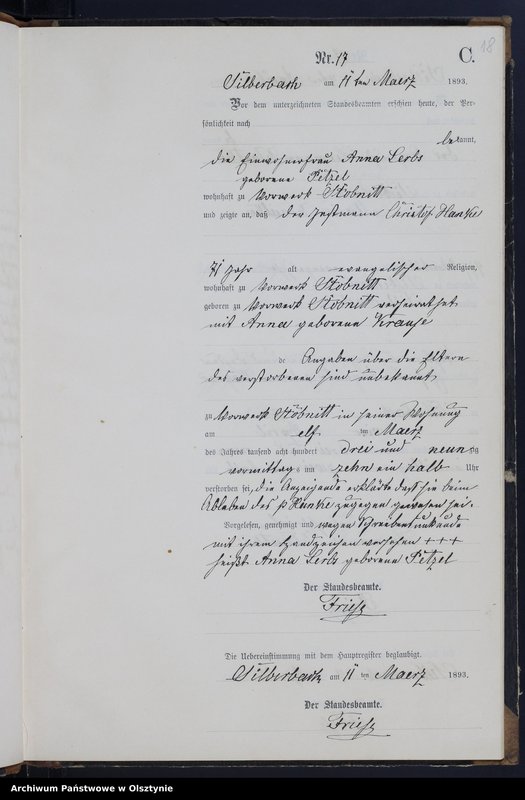 18
Nr. 17
C.
Silberbach am 11 ten Maerz 1893.
Vor dem unterzeichneten Standesbeamten erschien heute, der Per-
sönlichkeit nach
bekannt,
die Einwohnerfrau Anna Lerbs
geborene Petzel
wohnhaft zu Vorwerk Stobnitt
und zeigte an, daß der Instmann Christof Hanke
71 Jahr alt evangelischer Religion,
wohnhaft zu Vorwerk Stobnitt
geboren zu Vorwerk Stobnitt verheirathet
mit Anna geborene Krause
de Angaben über die Eltern
des verstorbenen sind unbekannt
zu Vorwerk Stobnitt in seiner Wohnung
am elf ten Maerz
des Jahres tausend acht hundert drei und neunzig
vormittags um zehn ein halb Uhr
verstorben sei, die Anzeigende erklärte daß sie beim
Ableben des p Hanke zugegen gewesen sei.
Vorgelesen, genehmigt und wegen Schreibensunkunde
mit ihrem Handzeichen versehen +++
heißt Anna Lerbs geborene Petzel
Der Standesbeamte.
Friese
Die Uebereinstimmung mit dem Hauptregister beglaubigt.
Silberbach am 11 ten Maerz 1893.
Der Standesbeamte.
Friese
Archiwum Państwowe w Olsztynie